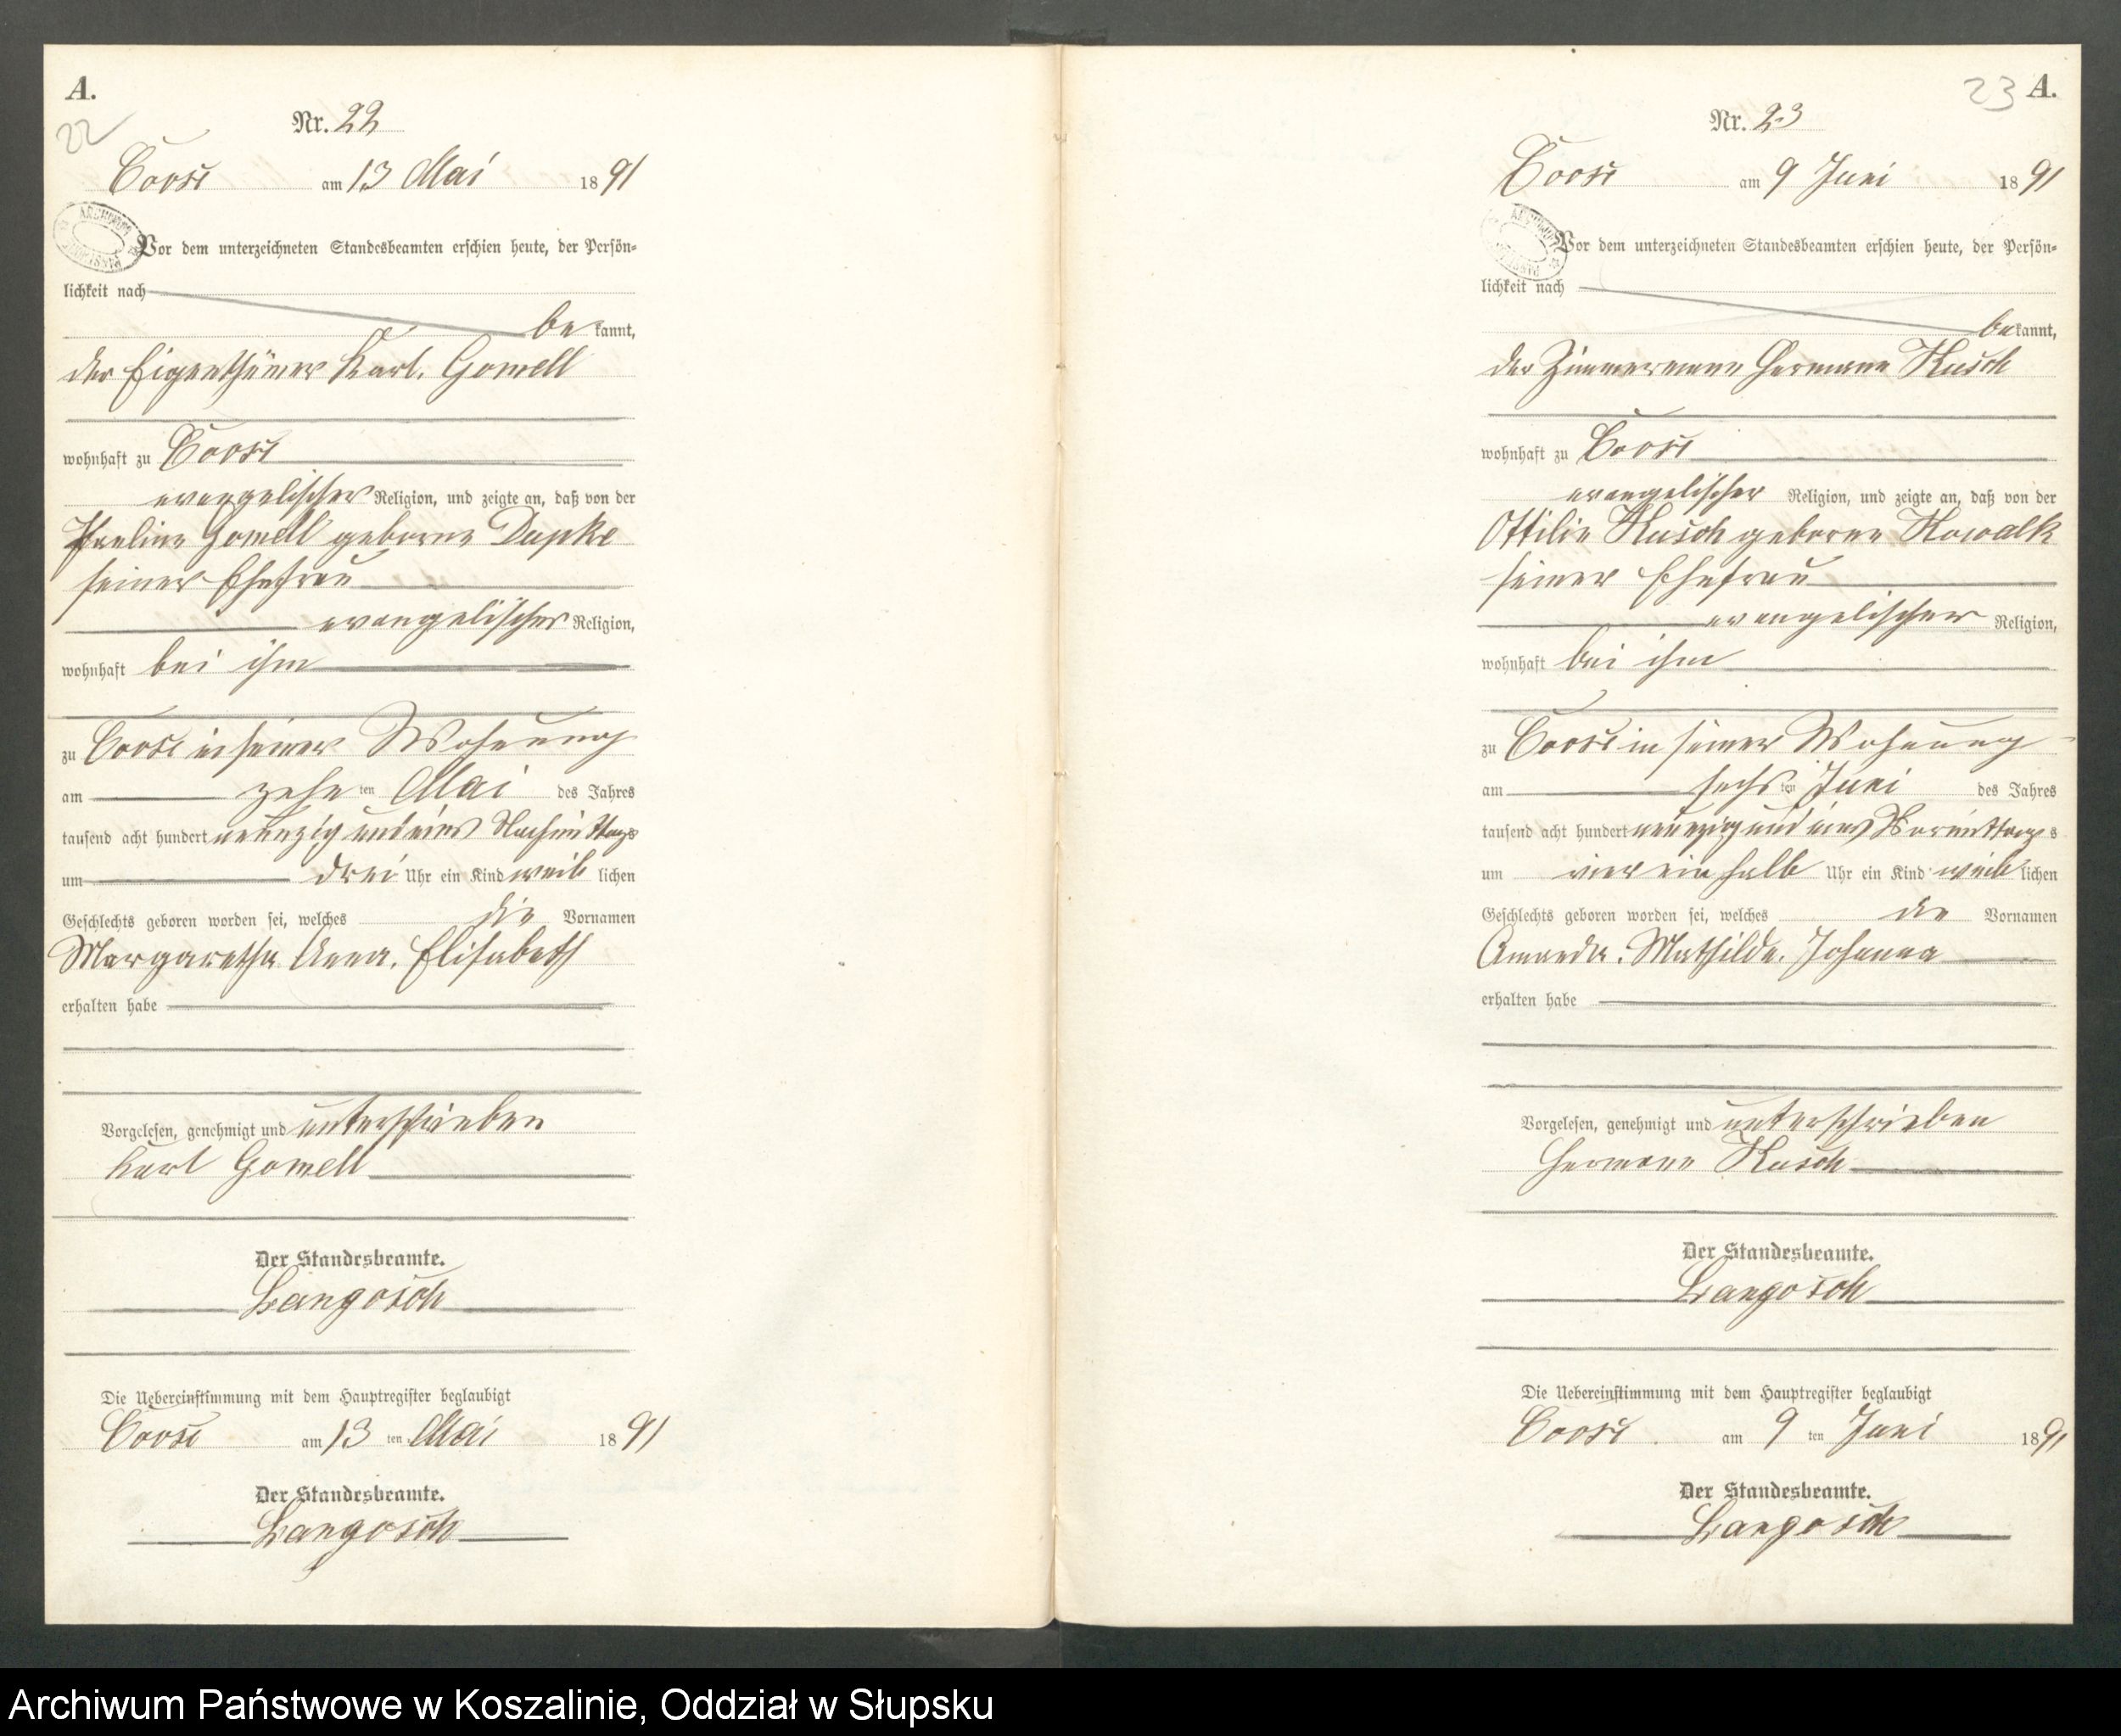 A.
22
Nr. 22
Coose am 13 Mai 1891
Vor dem unterzeichneten Standesbeamten erschien heute, der Persön-
lichkeit nach
be kannt,
der Eigenthümer Karl Gomell
wohnhaft zu Coose
evangelischer Religion, und zeigte an, daß von der
Pauline Gomell geborne Papke
seiner Ehefrau
evangelischer Religion,
wohnhaft bei ihm
zu Coose in seiner Wohnung
am zehn ten Mai des Jahres
tausend acht hundert neunzig und eins Nachmittags
um drei Uhr ein Kind weib lichen
Geschlechts geboren worden sei, welches die Vornamen
Margaretha Anna. Elisabeth
erhalten habe
Vorgelesen, genehmigt und unterschrieben
Karl Gomell
Der Standesbeamte.
Langosch
Die Uebereinstimmung mit dem Hauptregister beglaubigt
Coose am 13 ten Mai 1891
Der Standesbeamte.
Langosch
23 A.
Nr. 23
Coose am 9 Juni 1891
Vor dem unterzeichneten Standesbeamten erschien heute, der Persön-
lichkeit nach
be kannt,
der Zimmermann Hermann Kusch
wohnhaft zu Coose
evangelischer Religion, und zeigte an, daß von der
Ottilie Kusch geborne Kowalk
seiner Ehefrau
evangelischer Religion,
wohnhaft bei ihm
zu Coose in seiner Wohnung
am sechs ten Juni des Jahres
tausend acht hundert neunzig und eins Vormittags
um vier ein halb Uhr ein Kind weib lichen
Geschlechts geboren worden sei, welches die Vornamen
Amanda. Mathilde. Johanna
erhalten habe
Vorgelesen, genehmigt und unterschrieben
Hermann Kusch
Der Standesbeamte.
Langosch
Die Uebereinstimmung mit dem Hauptregister beglaubigt
Coose am 9 ten Juni 1891
Der Standesbeamte.
Langosch
Archiwum Państwowe w Koszalinie, Oddział w Słupsku